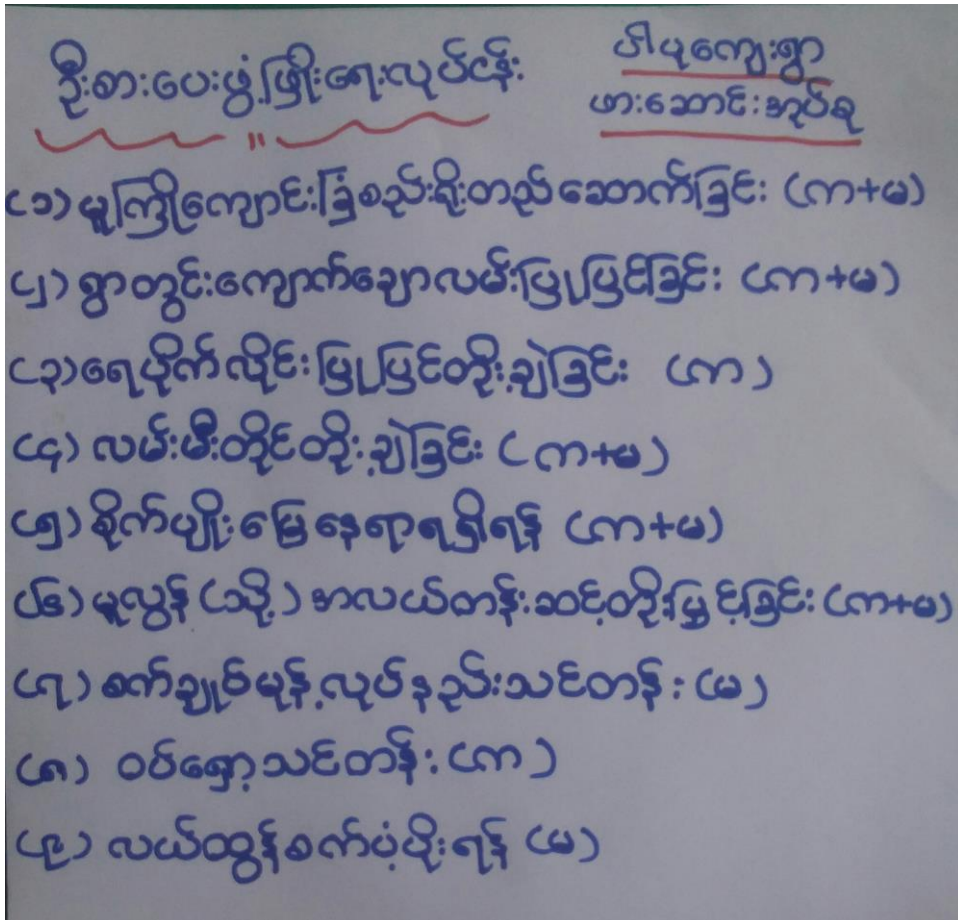 ဦးစားပေးဖွံ့ဖြိုးရေးလုပ်ငန်း
ပါပုကျေးရွာ
ဖားဆောင်းအုပ်စု
(၁) မူကြိုကျောင်းခြံစည်းရိုးတည်ဆောက်ခြင်း (က+မ)
(၂) ရွာတွင်းကျောက်ချောလမ်းပြုပြင်ခြင်း (က+မ)
(၃) ရေပိုက်လိုင်းပြုပြင်တိုးချဲ့ခြင်း (က)
(၄) လမ်းမီးတိုင်တိုးချဲ့ခြင်း (က+မ)
(၅) စိုက်ပျိုးမြေနေရာရရှိရန် (က+မ)
(၆) မူလွန် (သို့) အလယ်တန်းဆင့်တိုးမြှင့်ခြင်း (က+မ)
(၇) စက်ချုပ်မုန့်လုပ်နည်းသင်တန်း (မ)
(၈) ဝပ်ရှော့သင်တန်း (က)
(၉) လယ်ထွန်စက်ပံ့ပိုးရန် (မ)